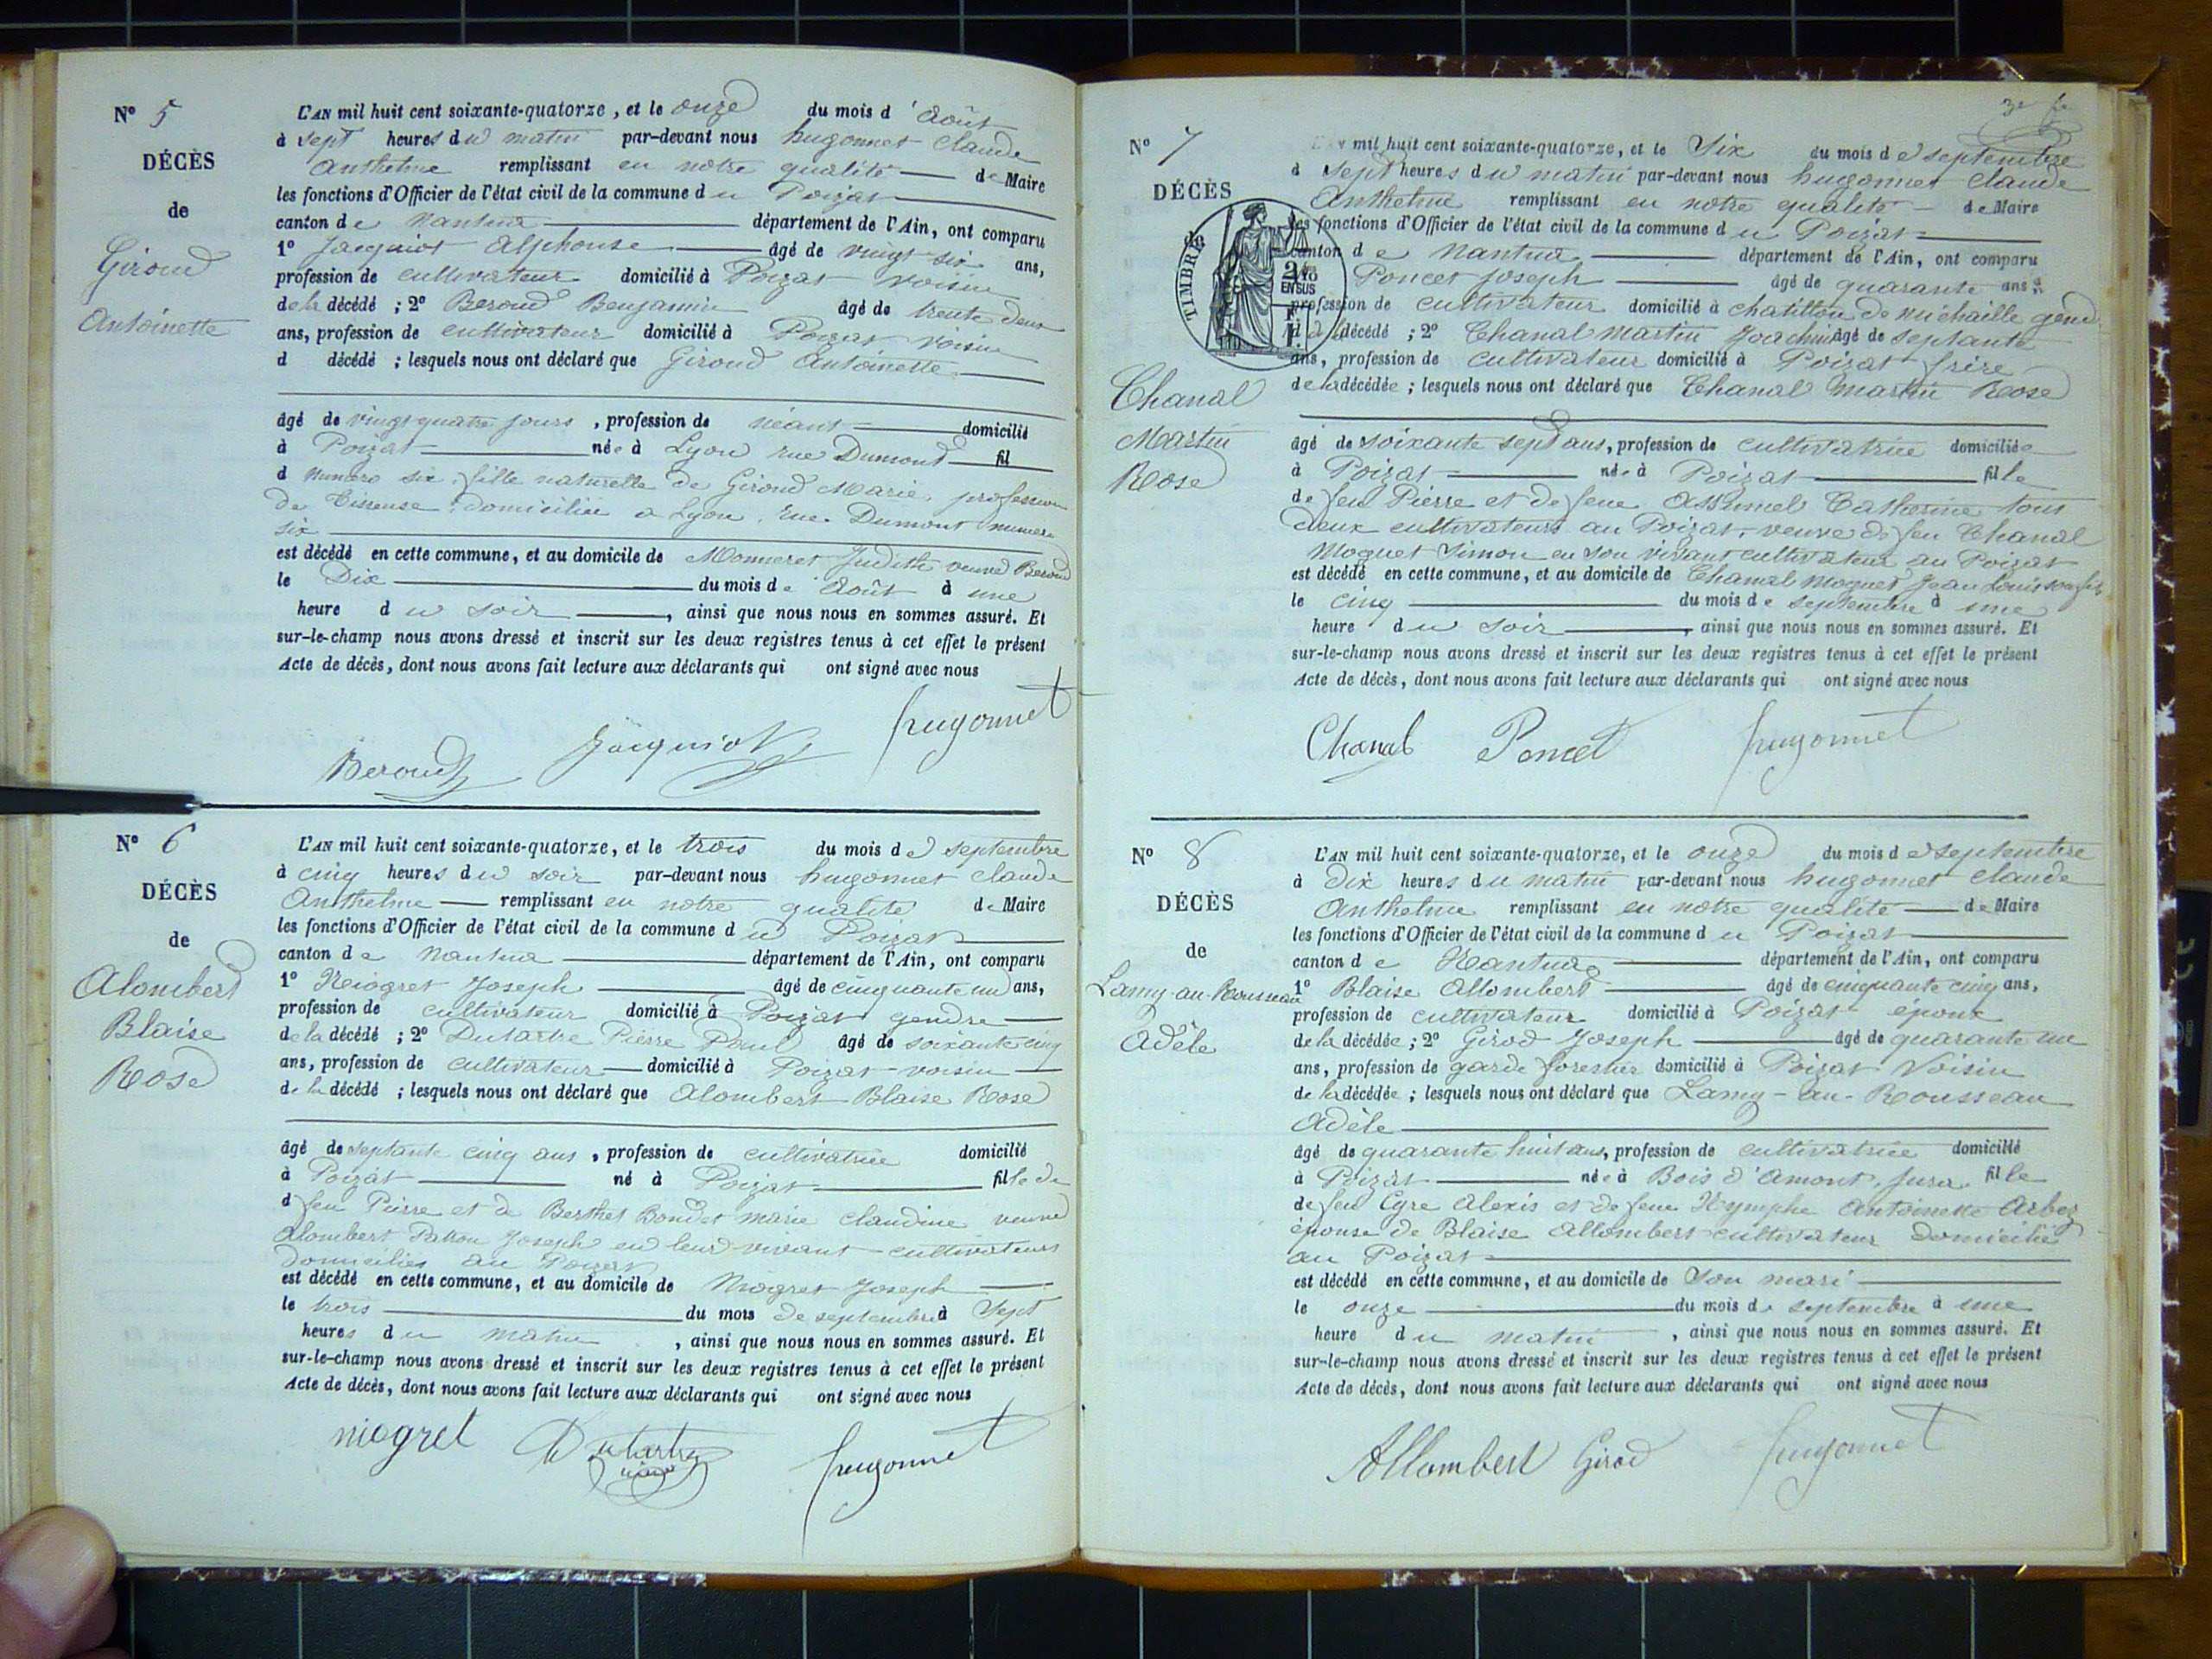 Nº 5
DÉCÈS
de
Giroud
Antoinette
L'AN mil huit cent soixante-quatorze, et le onze du mois d'Août
à sept heures du matin par-devant nous hugonnet Claude
Anthelme remplissant en notre qualité de Maire
les fonctions d'Officier de l'état civil de la commune du Poizat
canton de Nantua département de l'Ain, ont comparu
1º Jacquiot Alphonse âgé de vingt-six ans,
profession de cultivateur domicilié à Poizat voisin
de la décédé ; 2º Beroud Benjamin âgé de trente deux
ans, profession de cultivateur domicilié à Poizat voisin
d décédé ; lesquels nous ont déclaré que Giroud Antoinette
âgé de vingt quatre jours, profession de néant domicilié
à Poizat née à Lyon rue Dumont fil
d numéro six, fille naturelle de Giroud Marie, profession
de Tisseuse domiciliée a Lyon, rue Dumont numero
six
est décédé en cette commune, et au domicile de Monneret Judith veuve Beroud
le Dix du mois de Août à une
heure du soir, ainsi que nous nous en sommes assuré. Et
sur-le-champ nous avons dressé et inscrit sur les deux registres tenus à cet effet le présent
Acte de décès, dont nous avons fait lecture aux déclarants qui ont signé avec nous
Beroud Jacquiot hugonnet
Nº 6
DÉCÈS
de
Alombert
Blaise
Rose
L'AN mil huit cent soixante-quatorze, et le trois du mois de septembre
à cinq heures du soir par-devant nous hugonnet Claude
Anthelme remplissant en notre qualité de Maire
les fonctions d'Officier de l'état civil de la commune du Poizat
canton de Nantua département de l'Ain, ont comparu
1º Niogret Joseph âgé de cinquante un ans,
profession de cultivateur domicilié à Poizat gendre
de la décédé ; 2º Dutartre Pierre Paul âgé de soixante cinq
ans, profession de cultivateur domicilié à Poizat voisin
de la décédé ; lesquels nous ont déclaré que Alombert Blaise Rose
âgé de septante cinq ans, profession de cultivatrice domicilié
à Poizat né à Poizat fille de
d feu Pierre et de Berthet Bondet Marie Claudine veuve
Alombert Joseph en leur vivant cultivateurs
domiciliés au Poizat
est décédé en cette commune, et au domicile de Niogret Joseph
le trois du mois de septembre à sept
heures du matin, ainsi que nous nous en sommes assuré. Et
sur-le-champ nous avons dressé et inscrit sur les deux registres tenus à cet effet le présent
Acte de décès, dont nous avons fait lecture aux déclarants qui ont signé avec nous
niogret Dutartre hugonnet
Nº 7
DÉCÈS
de
TIMBRE
EN SUS
Chanal
Martin
Rose
mil huit cent soixante-quatorze, et le Six du mois de septembre
à sept heures du matin par-devant nous hugonnet Claude
Anthelme remplissant en notre qualité de Maire
les fonctions d'Officier de l'état civil de la commune du Poizat
canton de Nantua département de l'Ain, ont comparu
Poncet Joseph âgé de quarante ans
profession de cultivateur domicilié à chatillon de michaille gend
décédé ; 2º Chanal Martin Joachim âgé de septante
ans, profession de cultivateur domicilié à Poizat frère
de la décédée ; lesquels nous ont déclaré que Chanal Martin Rose
âgé de soixante sept ans, profession de cultivatrice domiciliée
à Poizat née à Poizat fille
de feu Pierre et de feue Assumel Catherine tous
deux cultivateurs au Poizat, veuve de feu Chanal
Moquet Simon en son vivant cultivateur au Poizat
est décédé en cette commune, et au domicile de Chanal Moquet Jean Louis son fils
le cinq du mois de septembre à une
heure du soir, ainsi que nous nous en sommes assuré. Et
sur-le-champ nous avons dressé et inscrit sur les deux registres tenus à cet effet le présent
Acte de décès, dont nous avons fait lecture aux déclarants qui ont signé avec nous
Chanal Poncet hugonnet
Nº 8
DÉCÈS
de
Lamy-au-Rousseau
Adèle
L'AN mil huit cent soixante-quatorze, et le onze du mois de septembre
à Dix heures du matin par-devant nous hugonnet Claude
Anthelme remplissant en notre qualité de Maire
les fonctions d'Officier de l'état civil de la commune du Poizat
canton de Nantua département de l'Ain, ont comparu
1º Blaise Allombert âgé de cinquante cinq ans,
profession de cultivateur domicilié à Poizat époux
de la décédée ; 2º Girod Joseph âgé de quarante un
ans, profession de garde forestier domicilié à Poizat Voisin
de la décédée ; lesquels nous ont déclaré que Lamy-au-Rousseau
Adèle
âgé de quarante huit ans, profession de cultivatrice domicilié
à Poizat née à Bois d'Amont, Jura, fille
de feu Cyre Alexis et de feue Nymphe Antoinette Arbez
épouse de Blaise Allombert cultivateur domicilié
au Poizat
est décédé en cette commune, et au domicile de Son mari
le onze du mois de septembre à une
heure du matin, ainsi que nous nous en sommes assuré. Et
sur-le-champ nous avons dressé et inscrit sur les deux registres tenus à cet effet le présent
Acte de décès, dont nous avons fait lecture aux déclarants qui ont signé avec nous
Allombert Girod hugonnet